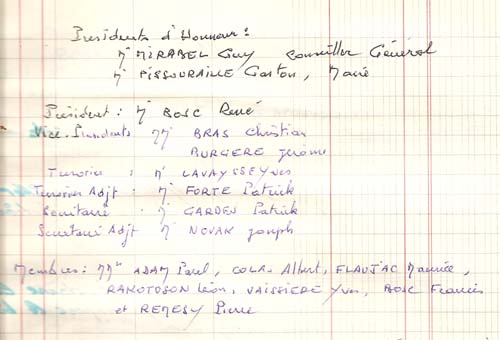 Présidents d'Honneur :
Mr MIRABEL Guy Conseiller Général
Mr PISSOURAILLE Gaston, Maire
Président : Mr BOSC René
Vice-Présidents MM BRAS Christian
BURGERE Jérôme
Trésorier : Mr LAVAYSSE Yves
Trésorier Adjt : Mr FORTE Patrick
Secrétaire : Mr GARDEN Patrick
Secrétaire Adjt Mr NOVAK Joseph
Membres : MMrs ADAM Paul, COLAS Albert, FLAUJAC Maurice,
RAKOTOSON Léon, VAISSIERE Yves, BOSC Francis
et REMESY Pierre